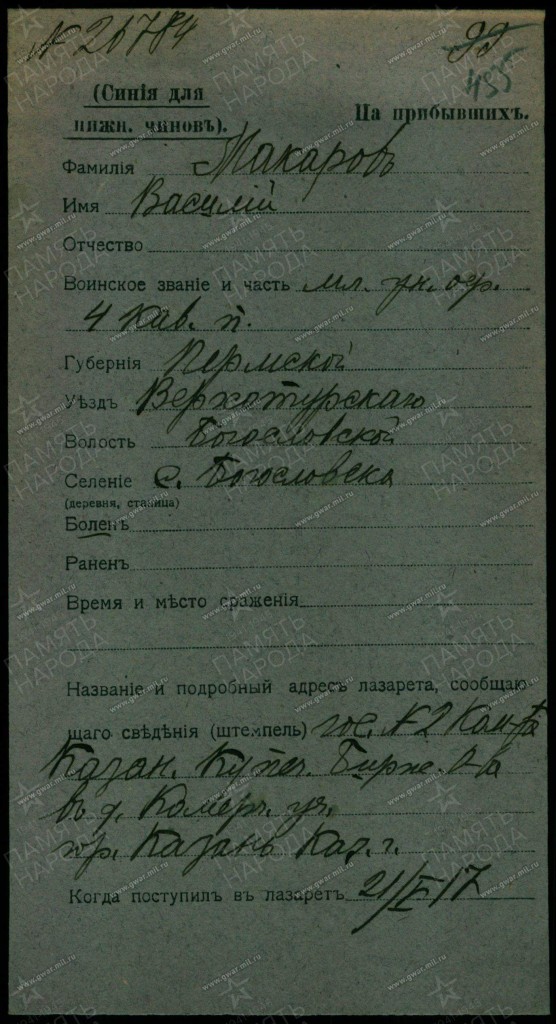 № 26784
99
455
(Синія для
нижн. чиновъ).
На прибывшихъ.
Фамилія Макаровъ
Имя Василій
Отчество
Воинское званіе и часть мл. ун. оф.
4 Кав. п.
Губернія Пермской
Уѣздъ Верхотурскаго
Волость Богословской
Селеніе с. Богословска
(деревня, станица)
Боленъ
Раненъ
Время и мѣсто сраженія
Названіе и подробный адресъ лазарета, сообщаю
щаго свѣдѣнія (штемпель) гос. №2 Ком-та
Казан. Купеч. Бирж. О-ва
въ д. Комерч. уч.
гор. Казань Каз. г.
Когда поступилъ въ лазаретъ 21/I 17